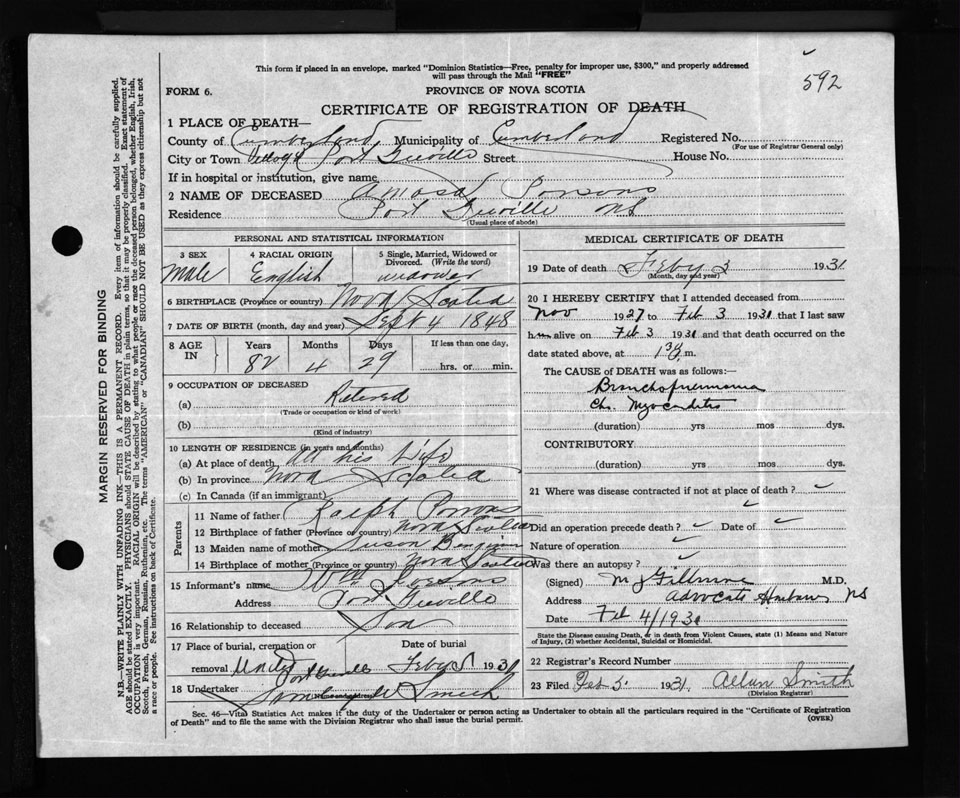 592
This form if placed in an envelope, marked "Dominion Statistics—Free, penalty for improper use, $300," and properly addressed
will pass through the Mail "FREE"
FORM 6.
PROVINCE OF NOVA SCOTIA
CERTIFICATE OF REGISTRATION OF DEATH
1 PLACE OF DEATH—
County of Cumberland Municipality of Cumberland Registered No.
(For use of Registrar General only)
City or Town Village Port Greville Street House No.
If in hospital or institution, give name
2 NAME OF DECEASED Amasa Parsons
Residence Port Greville NS
(Usual place of abode)
PERSONAL AND STATISTICAL INFORMATION
3 SEX 4 RACIAL ORIGIN 5 Single, Married, Widowed or Divorced. (Write the word)
Male English widower
6 BIRTHPLACE (Province or country) Nova Scotia
7 DATE OF BIRTH (month, day and year) Sept 4 1848
8 AGE IN Years Months Days If less than one day,
82 4 29 hrs. or min.
9 OCCUPATION OF DECEASED
(a) Retired
(Trade or occupation or kind of work)
(b)
(Kind of industry)
10 LENGTH OF RESIDENCE (in years and months)
(a) At place of death All his Life
(b) In province Nova Scotia
(c) In Canada (if an immigrant)
Parents
11 Name of father Ralph Parsons
12 Birthplace of father (Province or country) Nova Scotia
13 Maiden name of mother Susan Benjamin
14 Birthplace of mother (Province or country) Nova Scotia
15 Informant's name Wm Parsons
Address Port Greville
16 Relationship to deceased Son
17 Place of burial, cremation or Date of burial
removal United Port Greville Feby 5 1931
18 Undertaker Smith
MEDICAL CERTIFICATE OF DEATH
19 Date of death Feby 3 1931
(Month, day and year)
20 I HEREBY CERTIFY that I attended deceased from
Nov 1927 to Feb 3 1931 that I last saw
him alive on Feb 3 1931 and that death occurred on
date stated above, at m.
The CAUSE of DEATH was as follows:
Bronchopneumonia
Chr. Myocarditis
(duration) yrs mos dys.
CONTRIBUTORY
(duration) yrs mos dys.
21 Where was disease contracted if not at place of death?
Did an operation precede death? Date of
Nature of operation
Was there an autopsy?
(Signed) M J Fillmore M.D.
Address Advocate Harbour NS
Date Feb 4/1931
State the Disease causing Death, or in death from Violent Causes, state (1) Means and Nature
of Injury, (2) whether Accidental, Suicidal or Homicidal.
22 Registrar's Record Number
23 Filed Feb 5 1931 Allan Smith
(Division Registrar)
Sec. 46—Vital Statistics Act makes it the duty of the Undertaker or person acting as Undertaker to obtain all the particulars required in the "Certificate of Registration
of Death" and to file the same with the Division Registrar who shall issue the burial permit. (OVER)
MARGIN RESERVED FOR BINDING
N.B.—WRITE PLAINLY WITH UNFADING INK—THIS IS A PERMANENT RECORD. Every item of information should be carefully supplied.
AGE should be stated EXACTLY. PHYSICIANS should STATE CAUSE OF DEATH in plain terms, so that it may be properly classified. Exact statement of
OCCUPATION is very important. RACIAL ORIGIN will be described by stating to what people or race the deceased person belonged, whether English, Irish,
Scotch, French, German, Russian, Ruthenian, etc. The terms "AMERICAN" or "CANADIAN" SHOULD NOT BE USED as they express citizenship but not
a race or people. See instructions on back of Certificate.